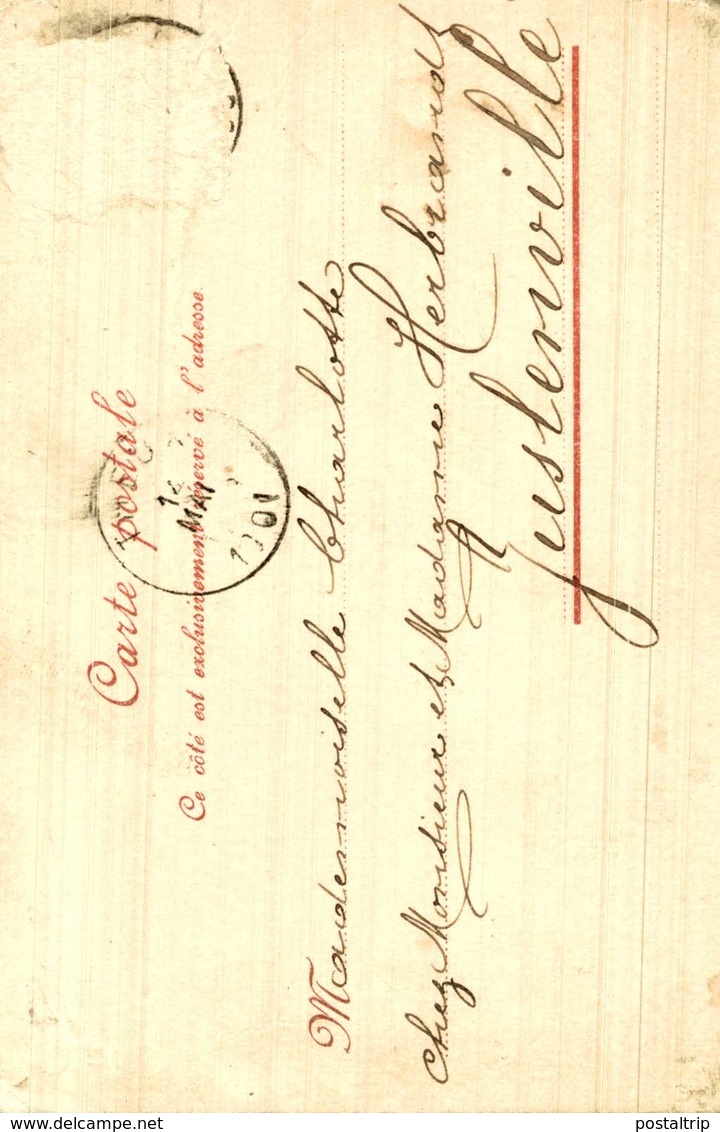 Carte postale
Ce côté est exclusivement réservé à l'adresse
Mademoiselle Charlotte
chez Monsieur et Madame Herbrandt
Juslenville
12
MAI
1901
www.delcampe.net
postaltrip